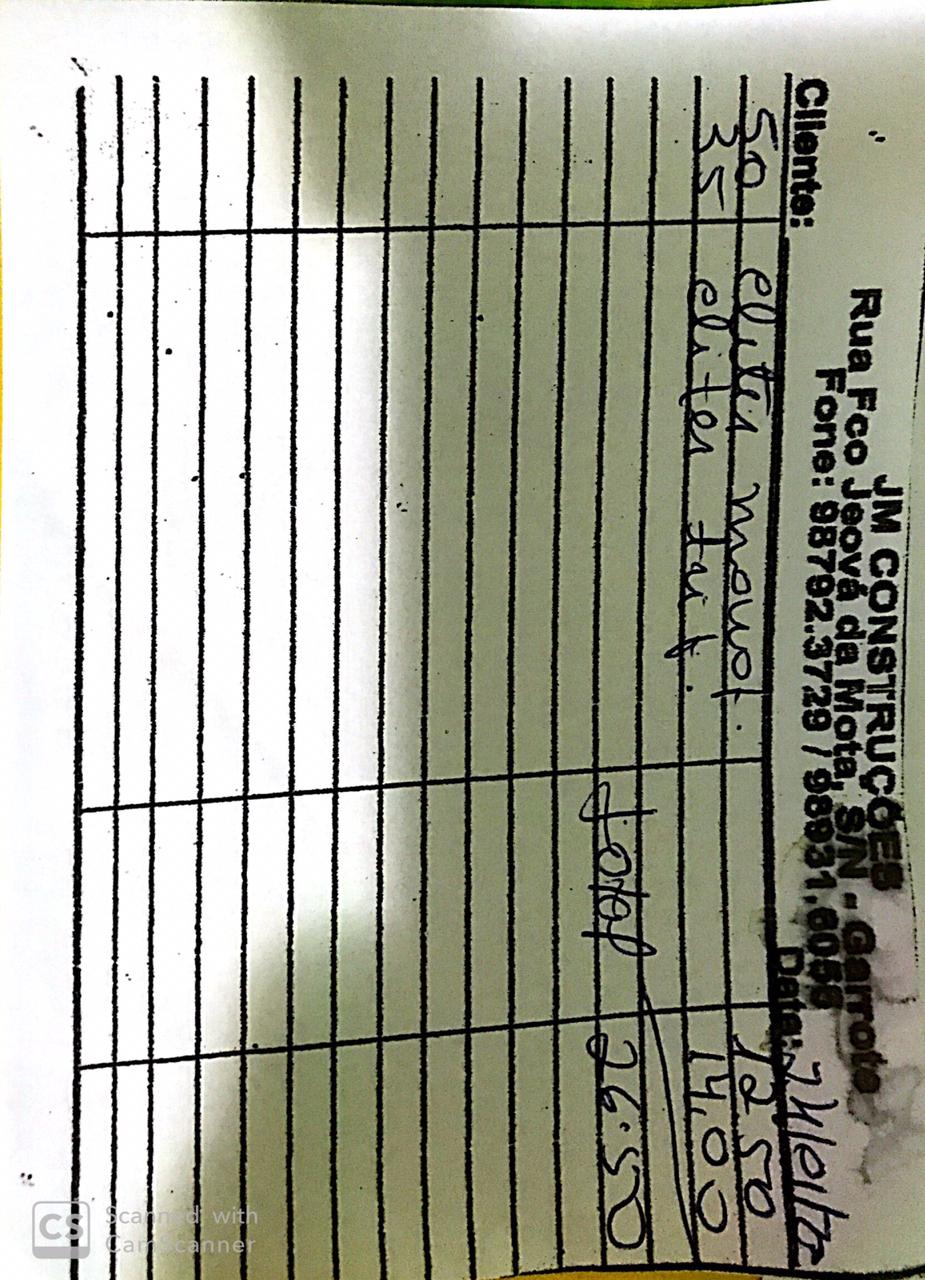 JM CONSTRUÇÕES
Rua Fco Jeová da Mota, S/N - Garrote
Fone: 98792.3729 / 98931.6056
Cliente: Data:
50 clites monof. 12 50
35 clites 14,00
Total 26.50
CS Scanned with
CamScanner